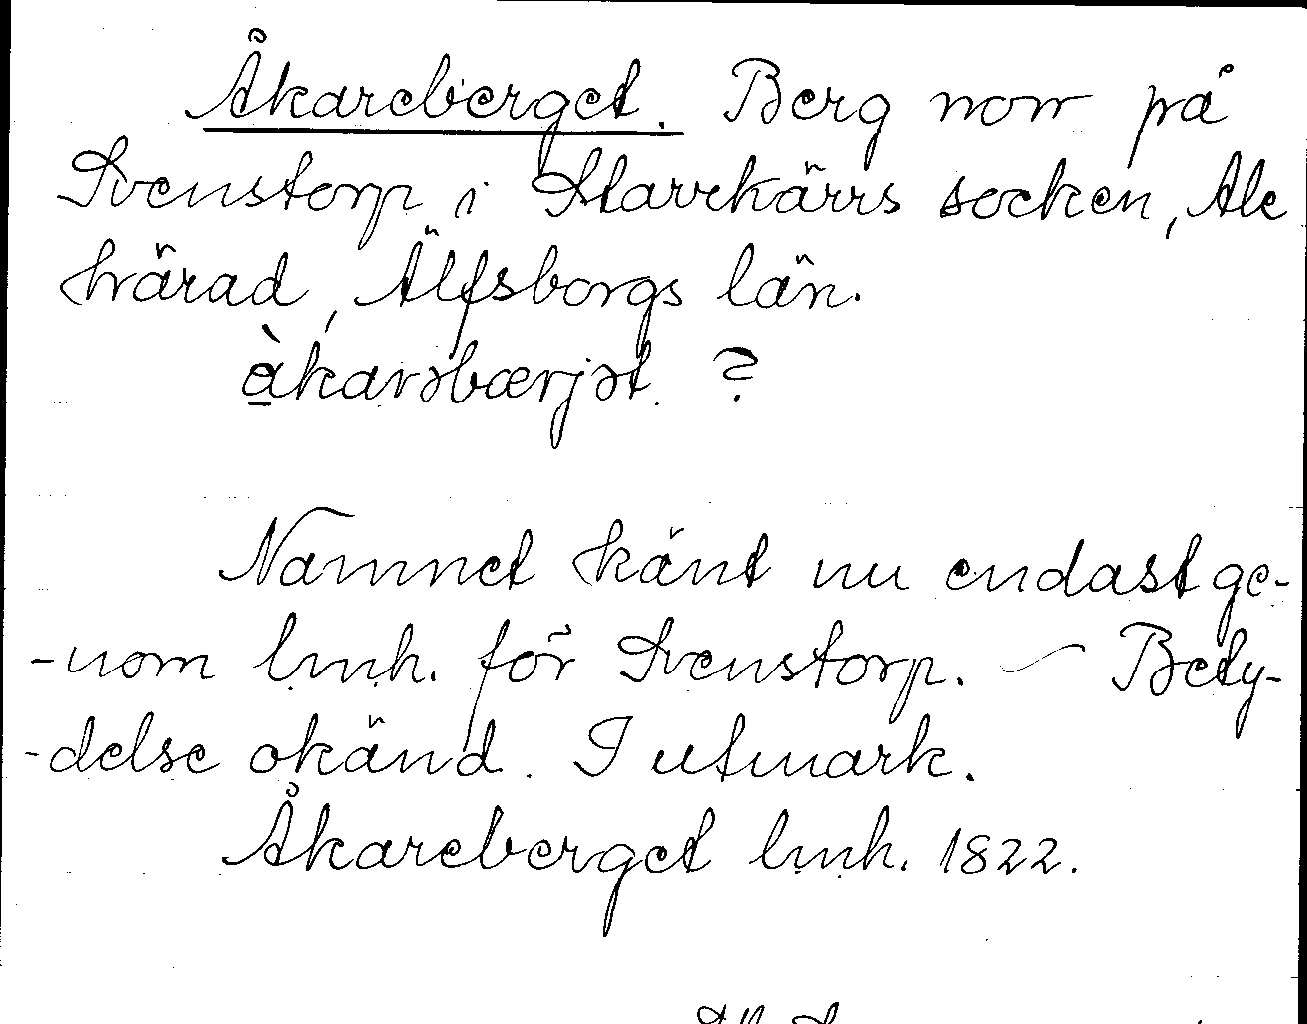 Åkareberget. Berg norr på
Svenstorp i Starrkärrs socken, Ale
härad, Älfsborgs län.
àkarəbærjət ?
Namnet känt nu endast ge-
-nom lmh. för Svenstorp. – Bety-
-delse okänd. I utmark.
Åkareberget lmh. 1822.